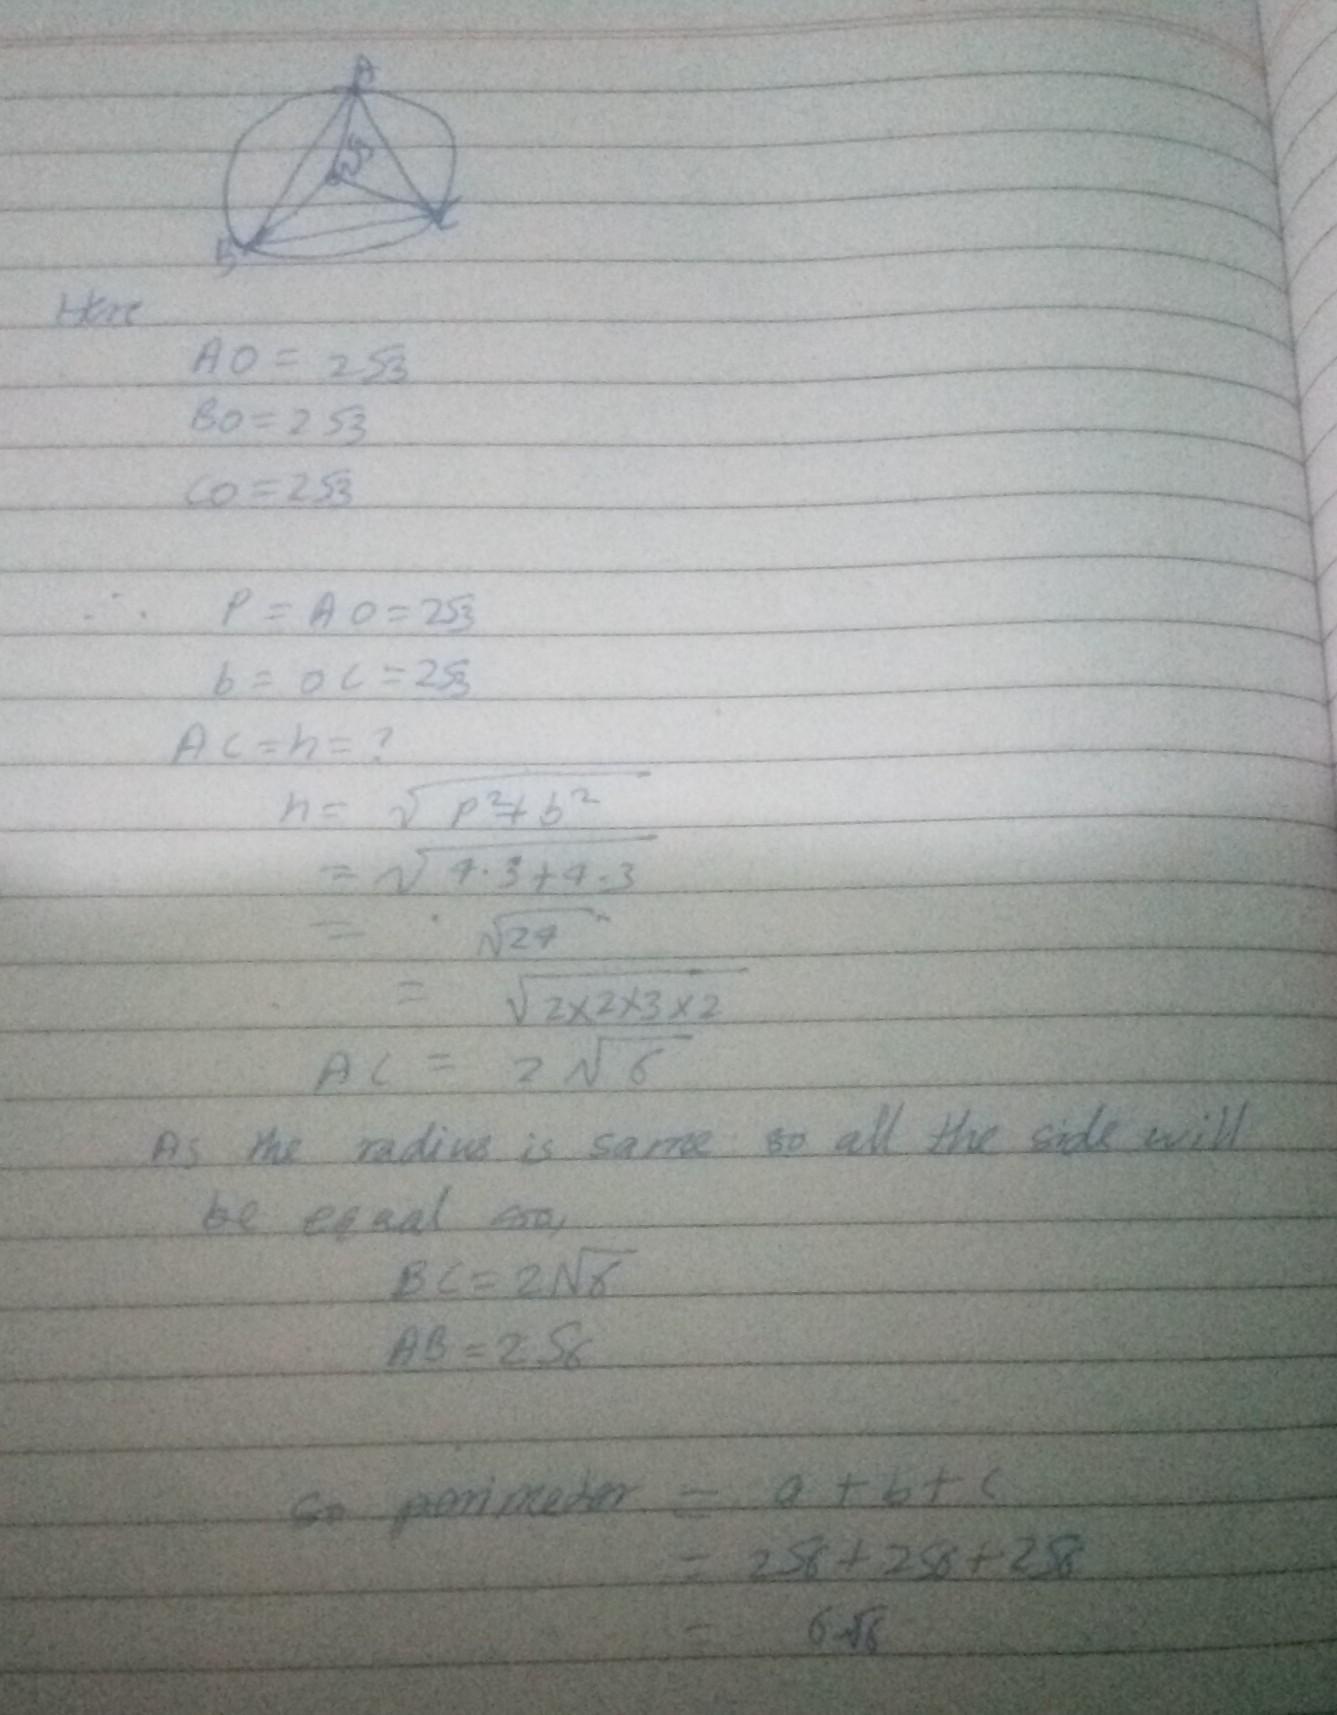 A
B C
Here
AO = 2√3
BO = 2√3
CO = 2√3
∴ P = AO = 2√3
b = OC = 2√3
AC = h = ?
h = √p²+b²
= √4·3+4·3
= √24
= √2×2×3×2
AC = 2√6
As the radius is same so all the side will
be equal so,
BC = 2√6
AB = 2√6
So perimeter = a + b + c
= 2√6 + 2√6 + 2√6
= 6√6